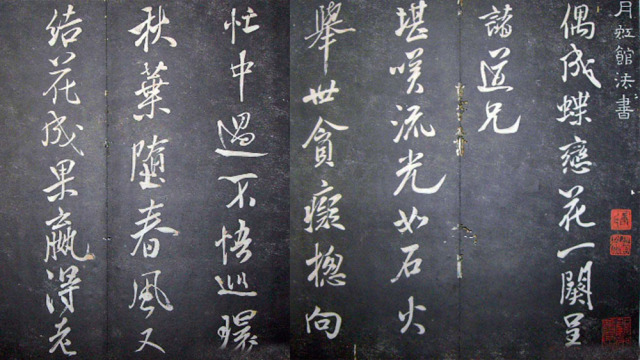 月虹館法書
偶成蝶戀花一闋呈
諸道兄
堪咲流光如石火
舉世貪癡摠向
忙中過不悟巡環
秋葉墮春風又
結花成果贏得老